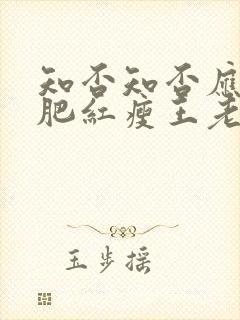 知否知否應
肥紅瘦王老
玉步摇